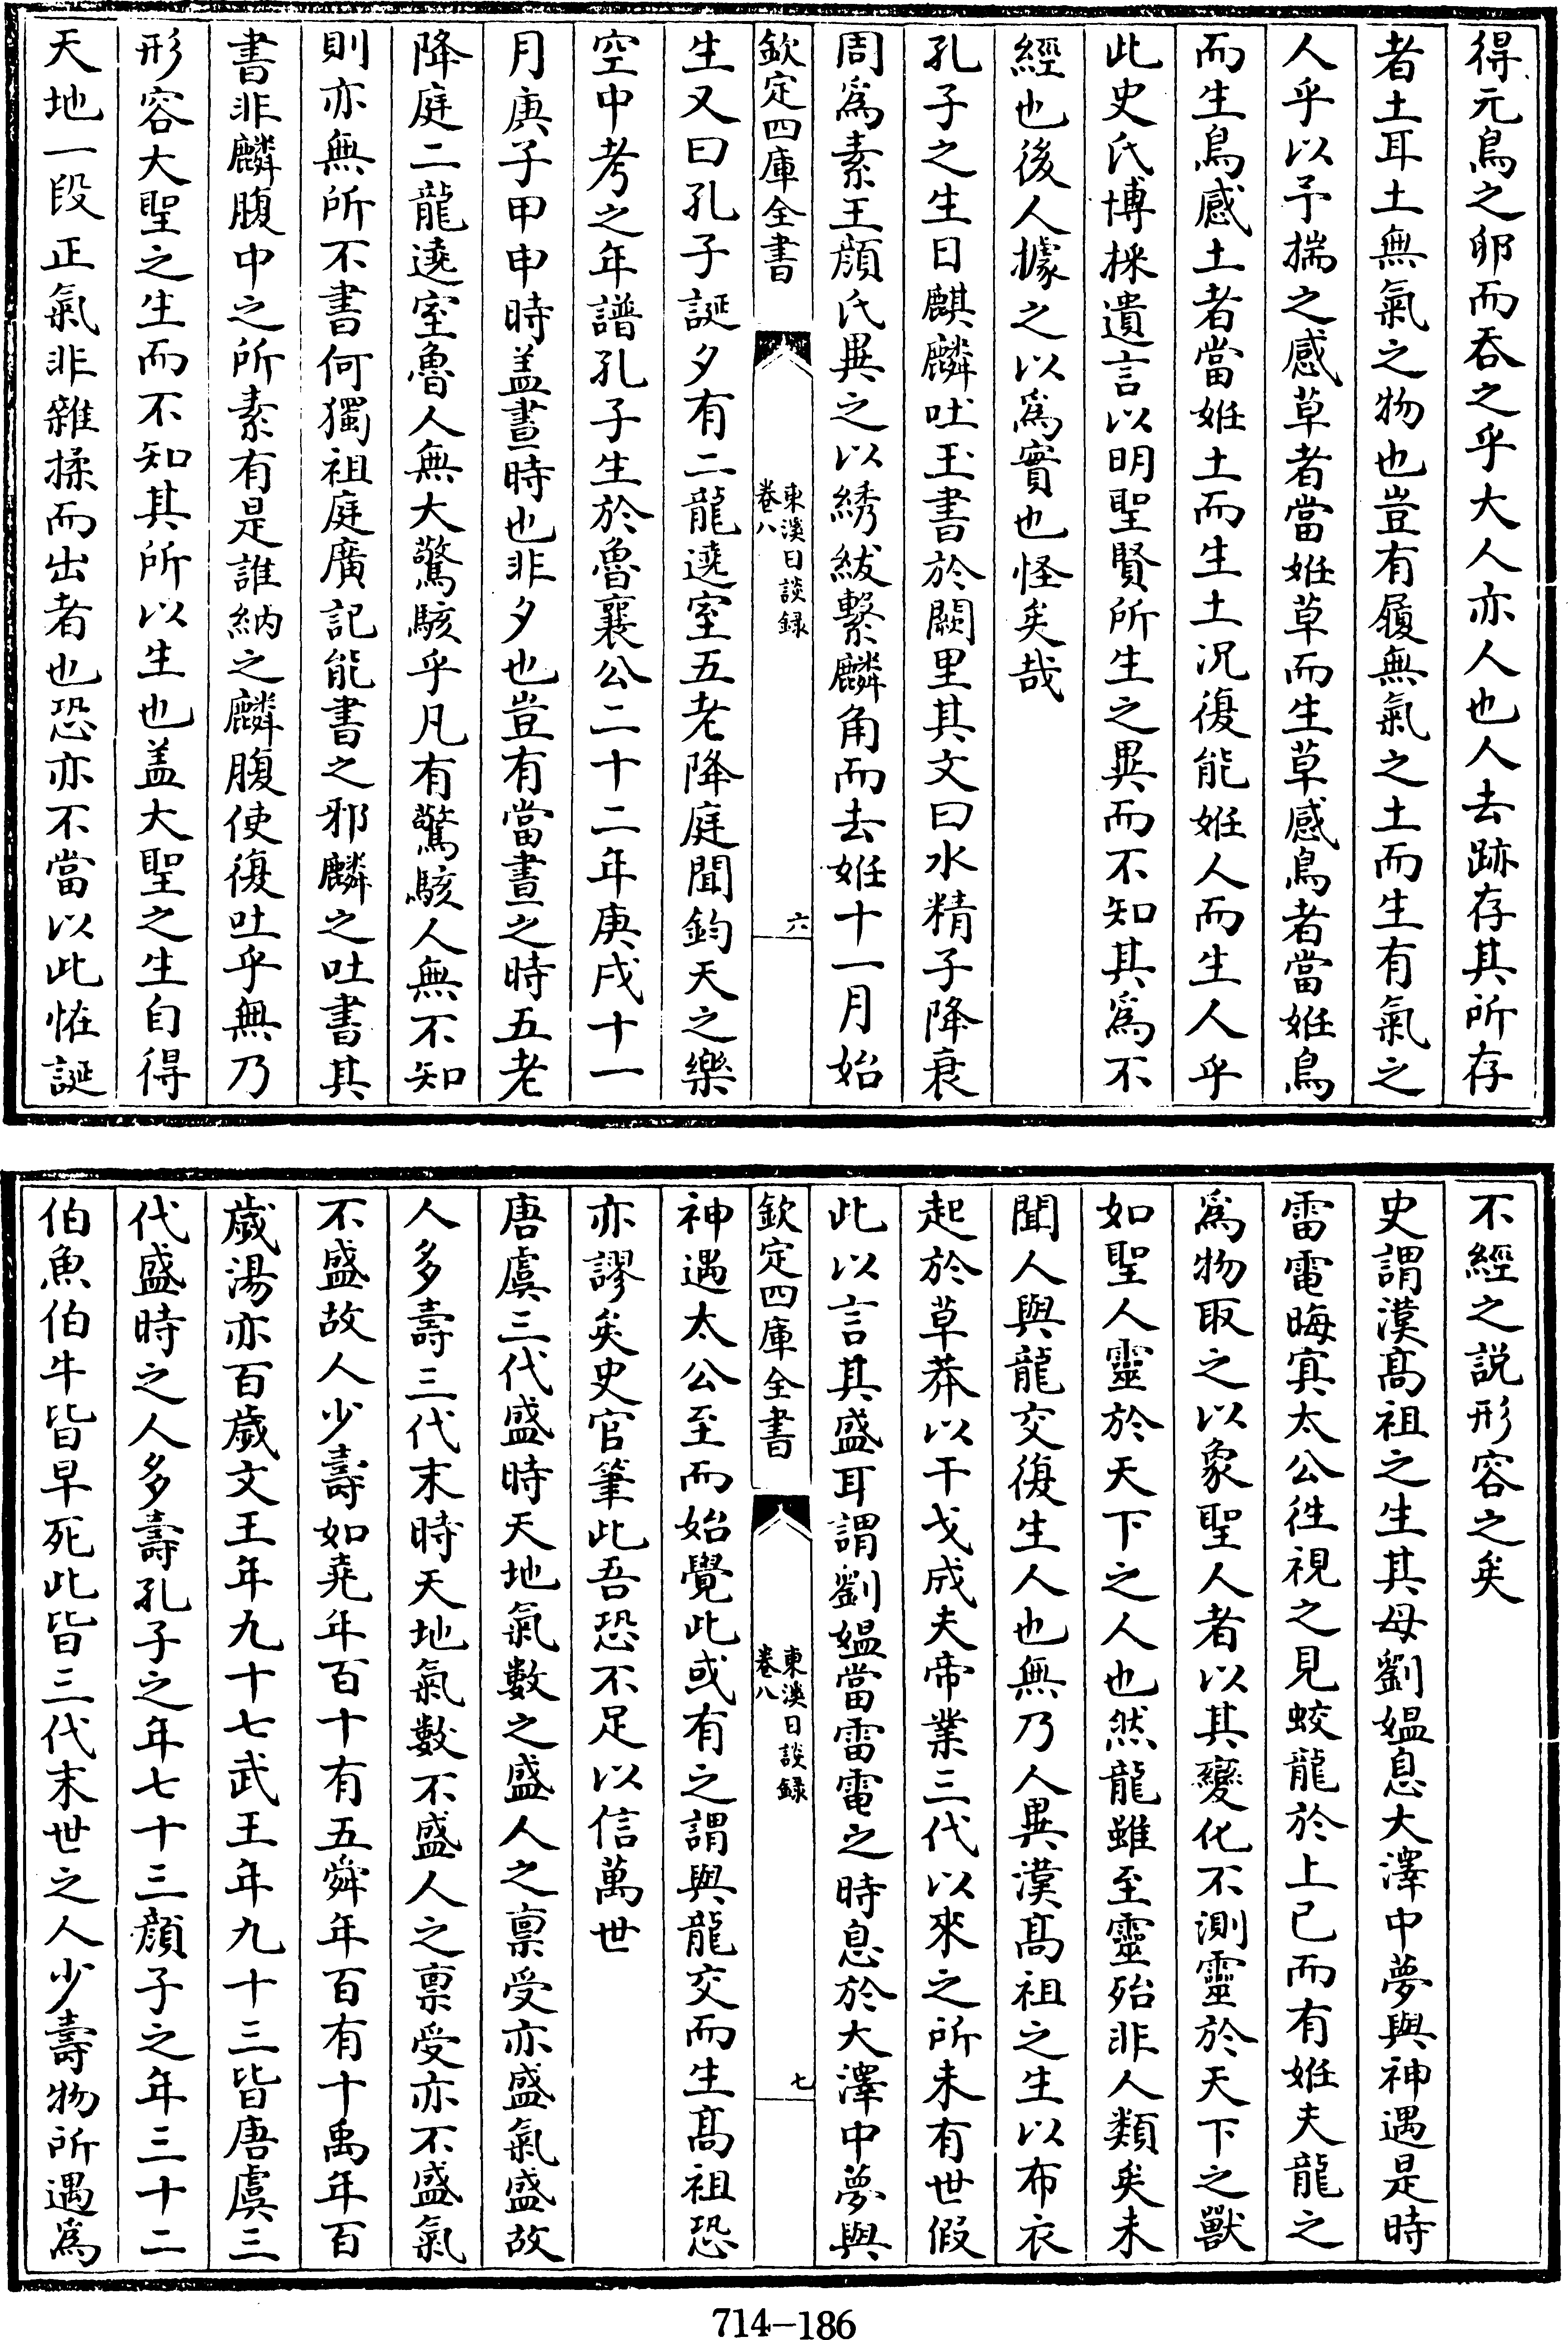 得元鳥之卵而吞之乎大人亦人也人去跡存其所存
者土耳土無氣之物也豈有履無氣之土而生有氣之
人乎以予揣之感草者當姙草而生草感鳥者當姙鳥
而生鳥感土者當姙土而生土况復能姙人而生人乎
此史氏博採遺言以明聖賢所生之異而不知其爲不
經也後人據之以爲實也怪矣哉
孔子之生日麒麟吐玉書於闕里其文曰水精子降衰
周爲素王顔氏異之以綉紱繫麟角而去姙十一月始
欽定四庫全書
東溪日談録
卷八
六
生又曰孔子誕夕有二龍遶室五老降庭聞鈞天之樂
空中考之年譜孔子生於魯襄公二十二年庚戌十一
月庚子甲申時盖晝時也非夕也豈有當晝之時五老
降庭二龍遶室魯人無大驚駭乎凡有驚駭人無不知
則亦無所不書何獨祖庭廣記能書之邪麟之吐書其
書非麟腹中之所素有是誰納之麟腹使復吐乎無乃
形容大聖之生而不知其所以生也盖大聖之生自得
天地一段正氣非雜揉而出者也恐亦不當以此恠誕
不經之説形容之矣
史謂漢髙祖之生其母劉媪息大澤中夢與神遇是時
雷電晦㝠太公徃視之見蛟龍於上已而有姙夫龍之
爲物取之以象聖人者以其變化不測靈於天下之獸
如聖人靈於天下之人也然龍雖至靈殆非人類矣未
聞人與龍交復生人也無乃人異漢髙祖之生以布衣
起於草莽以干戈成夫帝業三代以來之所未有世假
此以言其盛耳謂劉媪當雷電之時息於大澤中夢與
欽定四庫全書
東溪日談録
卷八
七
神遇太公至而始覺此或有之謂與龍交而生髙祖恐
亦謬矣史官筆此吾恐不足以信萬世
唐虞三代盛時天地氣數之盛人之禀受亦盛氣盛故
人多壽三代末時天地氣數不盛人之禀受亦不盛氣
不盛故人少壽如堯年百十有五舜年百有十禹年百
歲湯亦百歲文王年九十七武王年九十三皆唐虞三
代盛時之人多壽孔子之年七十三顔子之年三十二
伯魚伯牛皆早死此皆三代末世之人少壽物所遇爲
714-186